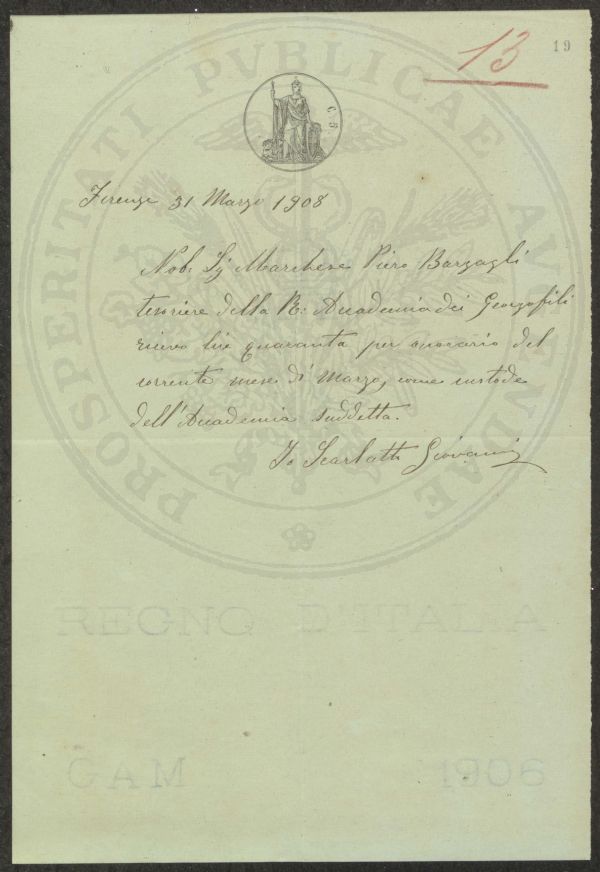 13
19
C. 5.
PROSPERITATI PVBLICAE AVGENDAE
Firenze 31 Marzo 1908
Nob. Sig Marchese Piero Barzagli
tesoriere della R: Accademia dei Georgofili
ricevo lire quaranta per onorario del
corrente mese di Marzo, come custode
dell'Accademia suddetta.
Io Scarlatti Giovanni
REGNO D'ITALIA
GAM 1906